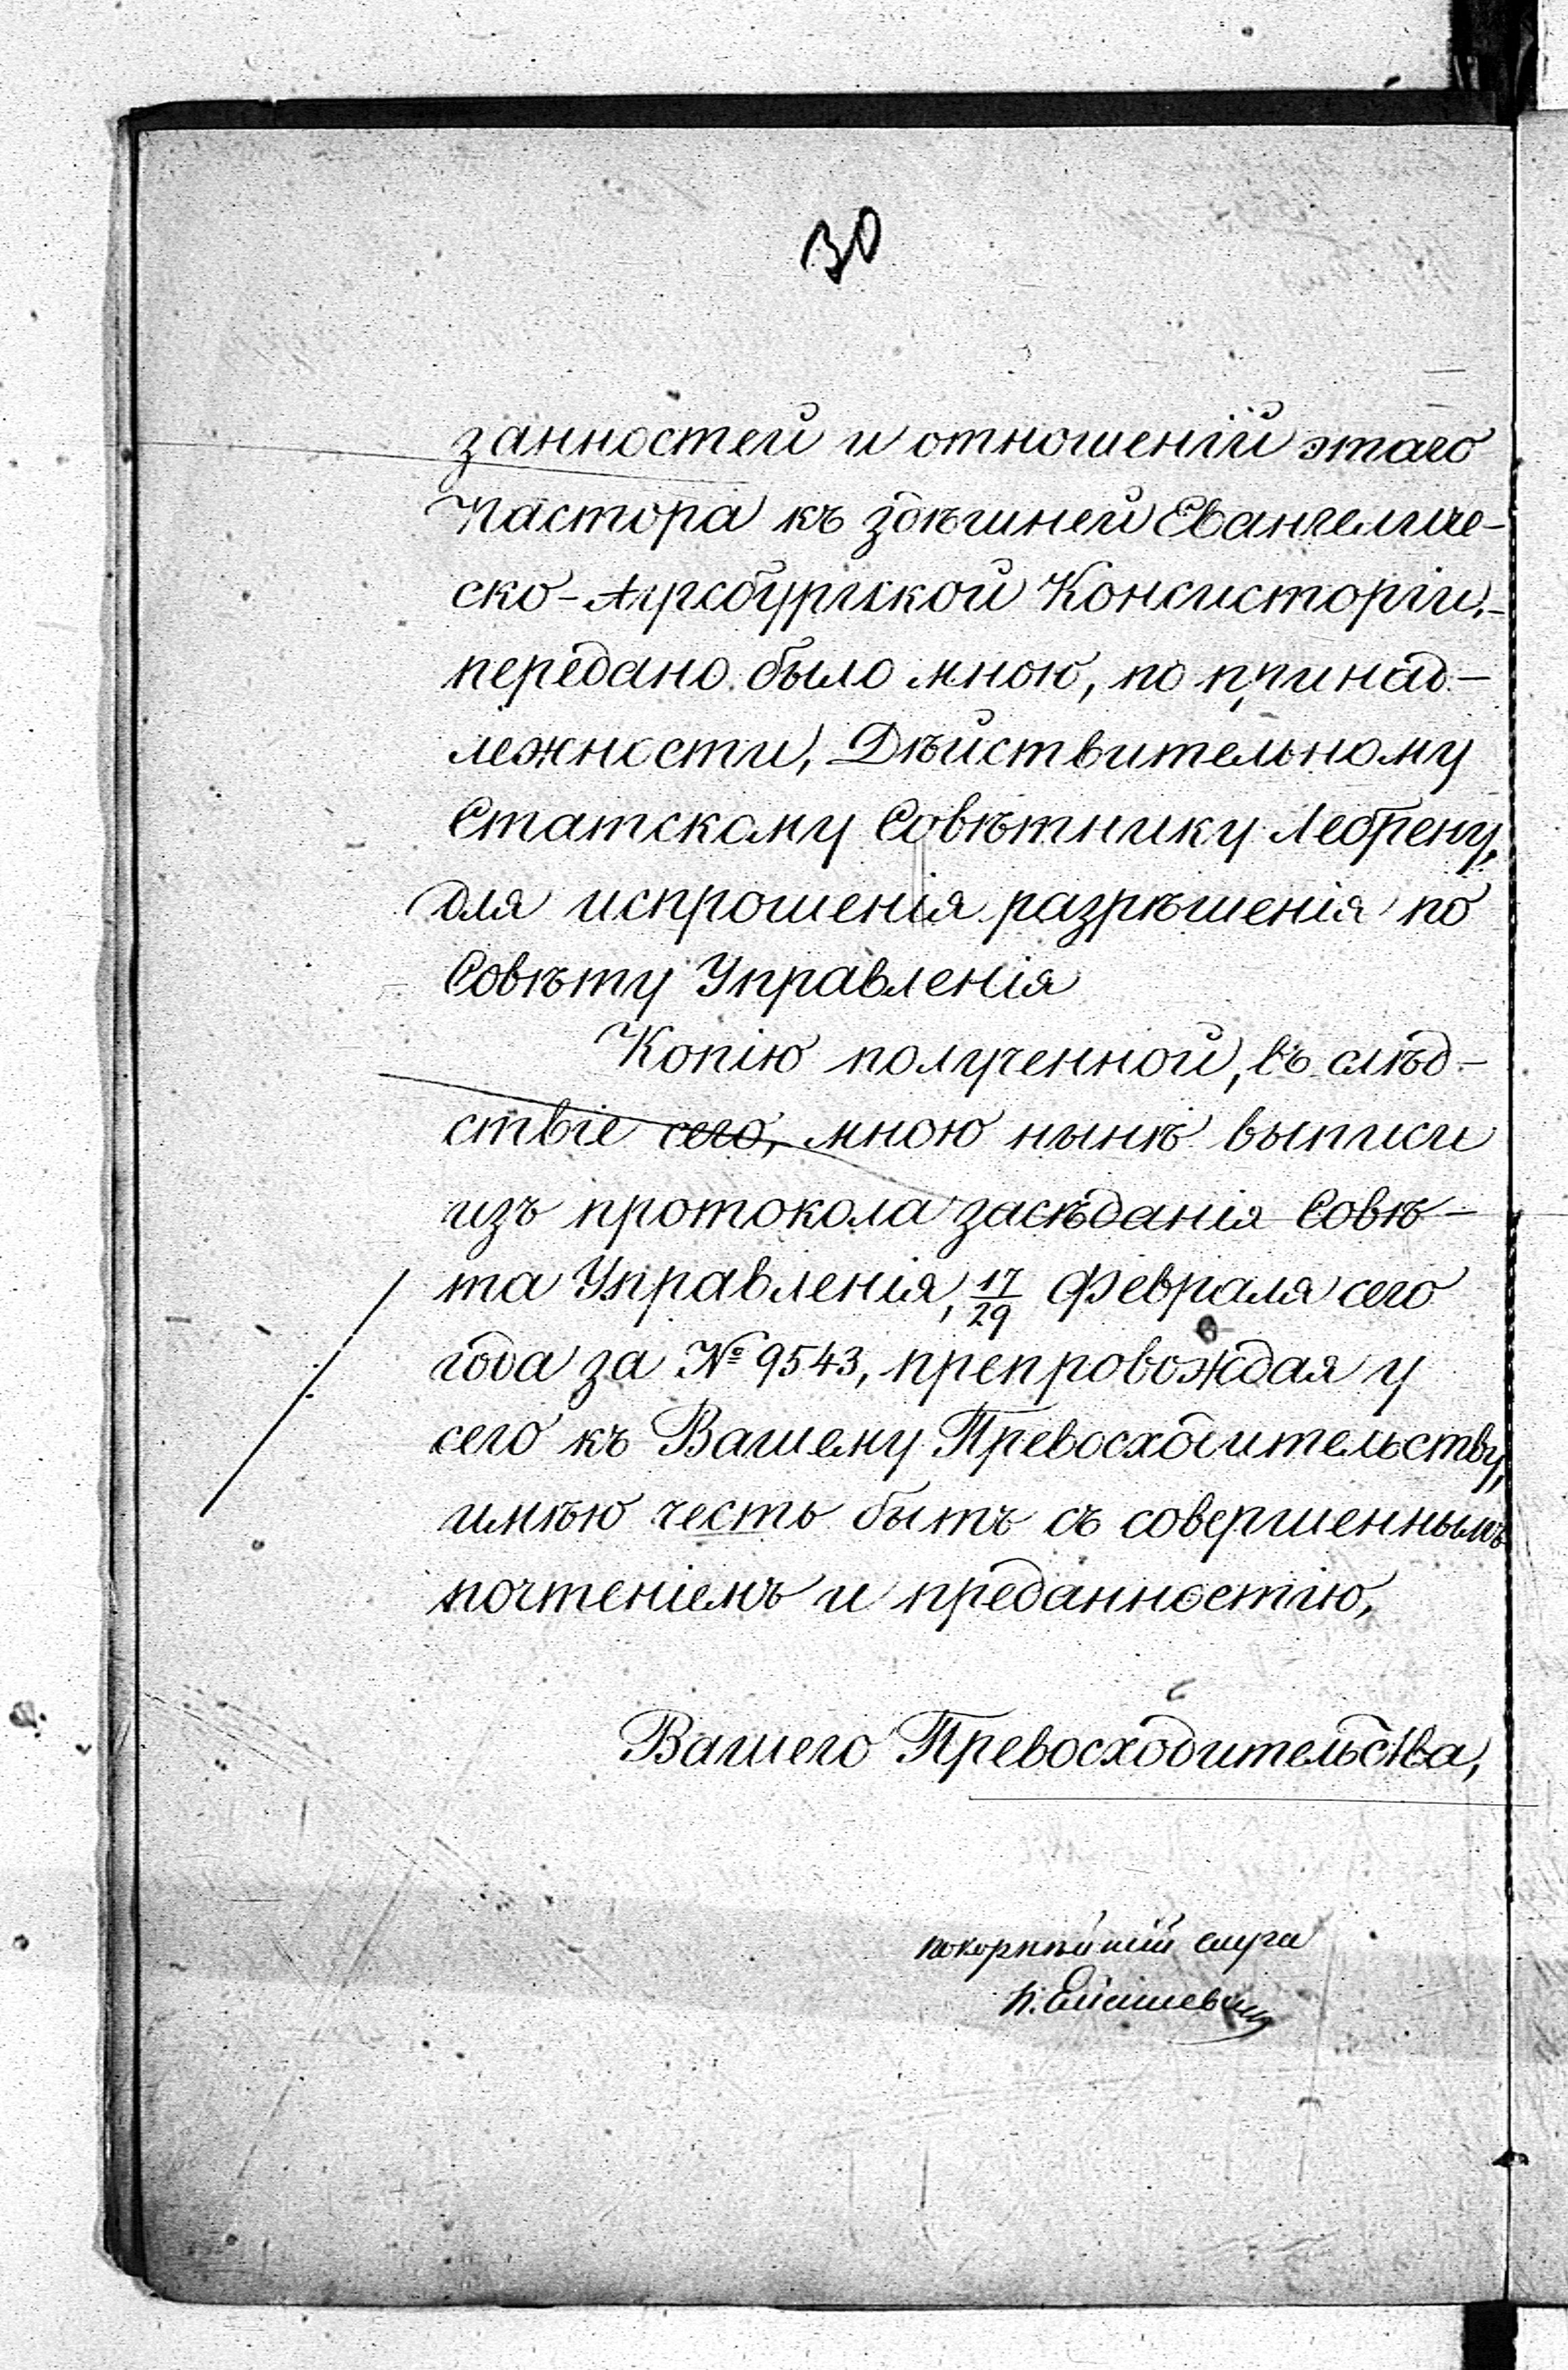 30
занностей и отношеній этаго
Пастора къ здѣшней Евангеличе-
ско-Аугсбургской Консисторіи,-
передано было мною, по принад-
лежности, Дѣйствительному
Статскому Совѣтнику Лебрену,
для испрошенія разрѣшенія по
Совѣту Управленія
Копію полученной, въ слѣд-
ствіе сего, мною нынѣ выписи
изъ протокола засѣданія Совѣ-
та Управленія, 17/29 Февраля сего
года за № 9543, препровождая у
сего къ Вашему Превосходительству,
имѣю честь быть съ совершеннымъ
почтеніемъ и преданностію,
Вашего Превосходительства,
покорнѣйшій слуга